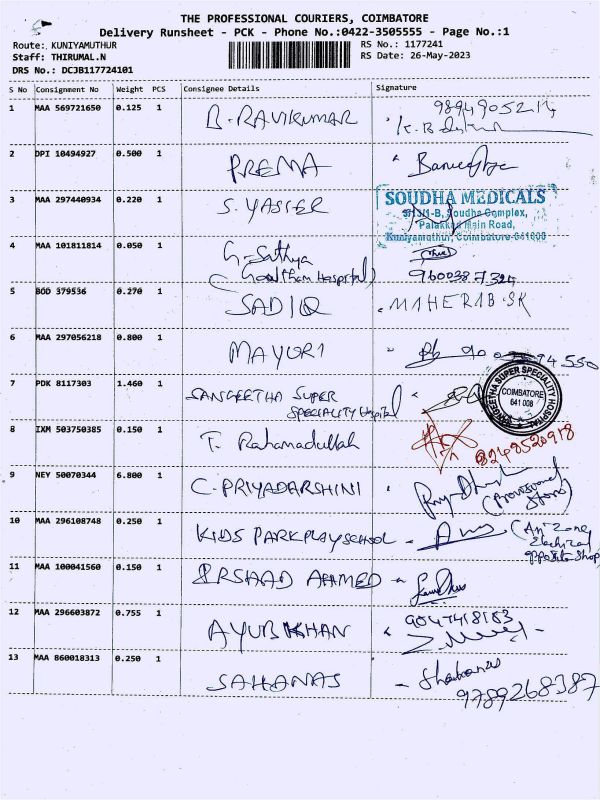 THE PROFESSIONAL COURIERS, COIMBATORE
Delivery Runsheet - PCK - Phone No.:0422-3505555 - Page No.:1
Route: KUNIYAMUTHUR
Staff: THIRUMAL.N
DRS No.: DCJB117724101
RS No.: 1177241
RS Date: 26-May-2023
S No Consignment No Weight PCS Consignee Details Signature
1 MAA 569721650 0.125 1 B.RAVIKUMAR 9894905214
2 DPI 10494927 0.500 1 PREMA
3 MAA 297440934 0.220 1 S.YASIER
SOUDHA MEDICALS
Soudha Complex,
Palakkad Main Road,
Kuniyamuthur, Coimbatore-641008
4 MAA 101811814 0.050 1 G-Sathya
(Gowtham Hospital) 9600387324
5 BOD 379536 0.270 1 SADIQ MAHERAB.SK
6 MAA 297056218 0.800 1 MAYURI
7 PDK 8117303 1.460 1 SANGEETHA SUPER
SPECIALITY Hospital
SANGEETHA SUPER SPECIALITY HOSPITAL
COIMBATORE
641 008
8 IXM 503750385 0.150 1 T. Rahamadullah 8248520918
9 NEY 50070344 6.800 1 C.PRIYADARSHINI
(Provisional
Store)
10 MAA 296108748 0.250 1 KIDS PARK PLAY SCHOOL
Electrical
opposite shop)
11 MAA 100041560 0.150 1 IRSHAD AHMED
12 MAA 296603872 0.755 1 AYUB KHAN 9047418163
13 MAA 860018313 0.250 1 SAHANAS - Shahanas
9789268387